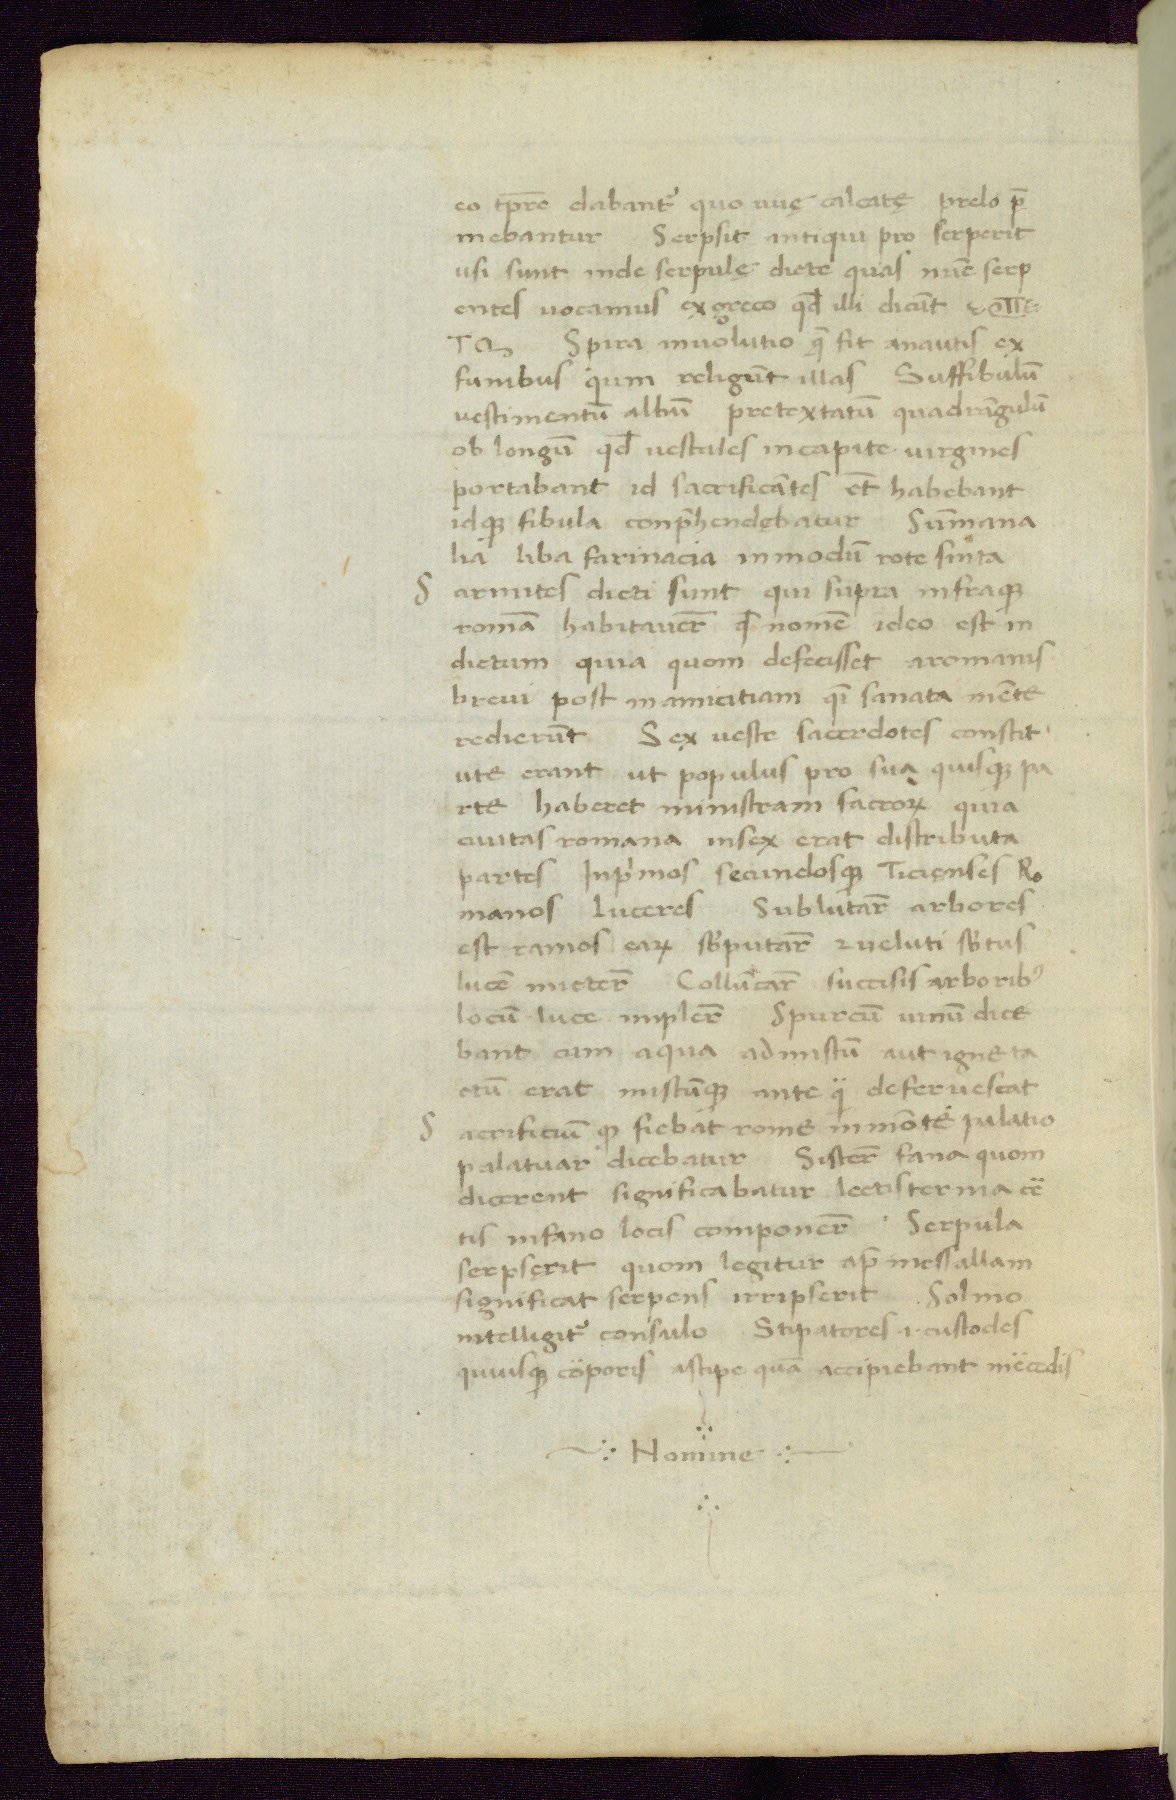 eo tp̄re dabant᷑ quo uuę calcatę prelo p̄
mebantur Serpsit antiqui pro serperit
usi sunt inde serpulę dicte quas nūc serp
entes uocamus ex greco qđ illi dicūt
Spira inuolutio q̄ fit anautis ex
funibus quum religūt illas Suffibulū
uestimentū albū pretextatū quadrāgulū
ob longū qđ uestales incapite uirgines
portabant id sacrificātes et habebant
idqꝫ fibula conp̄hendebatur Sūmana
lia liba farinacia inmodū rote
S arnites dicti sunt qui supra infraqꝫ
romā habitauer̄ nomē ideo est in
dictum quia quom defecisset aromanis
breui post inamicitiam q̄i sanata mēte
redierūt Sex ueste sacerdotes constit
ute erant ut populus pro sua quisqꝫ pa
rte haberet ministram sacroꝝ quia
ciuitas romana insex erat distributa
partes Inp̄mos secundosqꝫ Ticienses Ro
manos luceres Sublutar̄ arbores
est ramos eaꝝ sb̄putar̄ ⁊ ueluti sb̄tus
lucē micter̄ Collūcar̄ succisis arborib᷒
locū luce impler̄ Spurcū uinū dice
bant cum aqua admistū aut igne ta
ctū erat mistūqꝫ ante q̄ deferuescat
S acrificiū qꝫ fiebat rome inmōte palatio
palatuar dicebatur Sister̄ fana quom
dicerent significabatur lectisternia c̄e
tis infano locis componer̄ Serpula
serpserit quom legitur ap̄ messallam
significat serpens irripserit Solino
intelligit᷑ consulo Stipatores ⁊ custodes
quiusqꝫ cōporis astipe quā accipiebant m̄cedis
Nomine